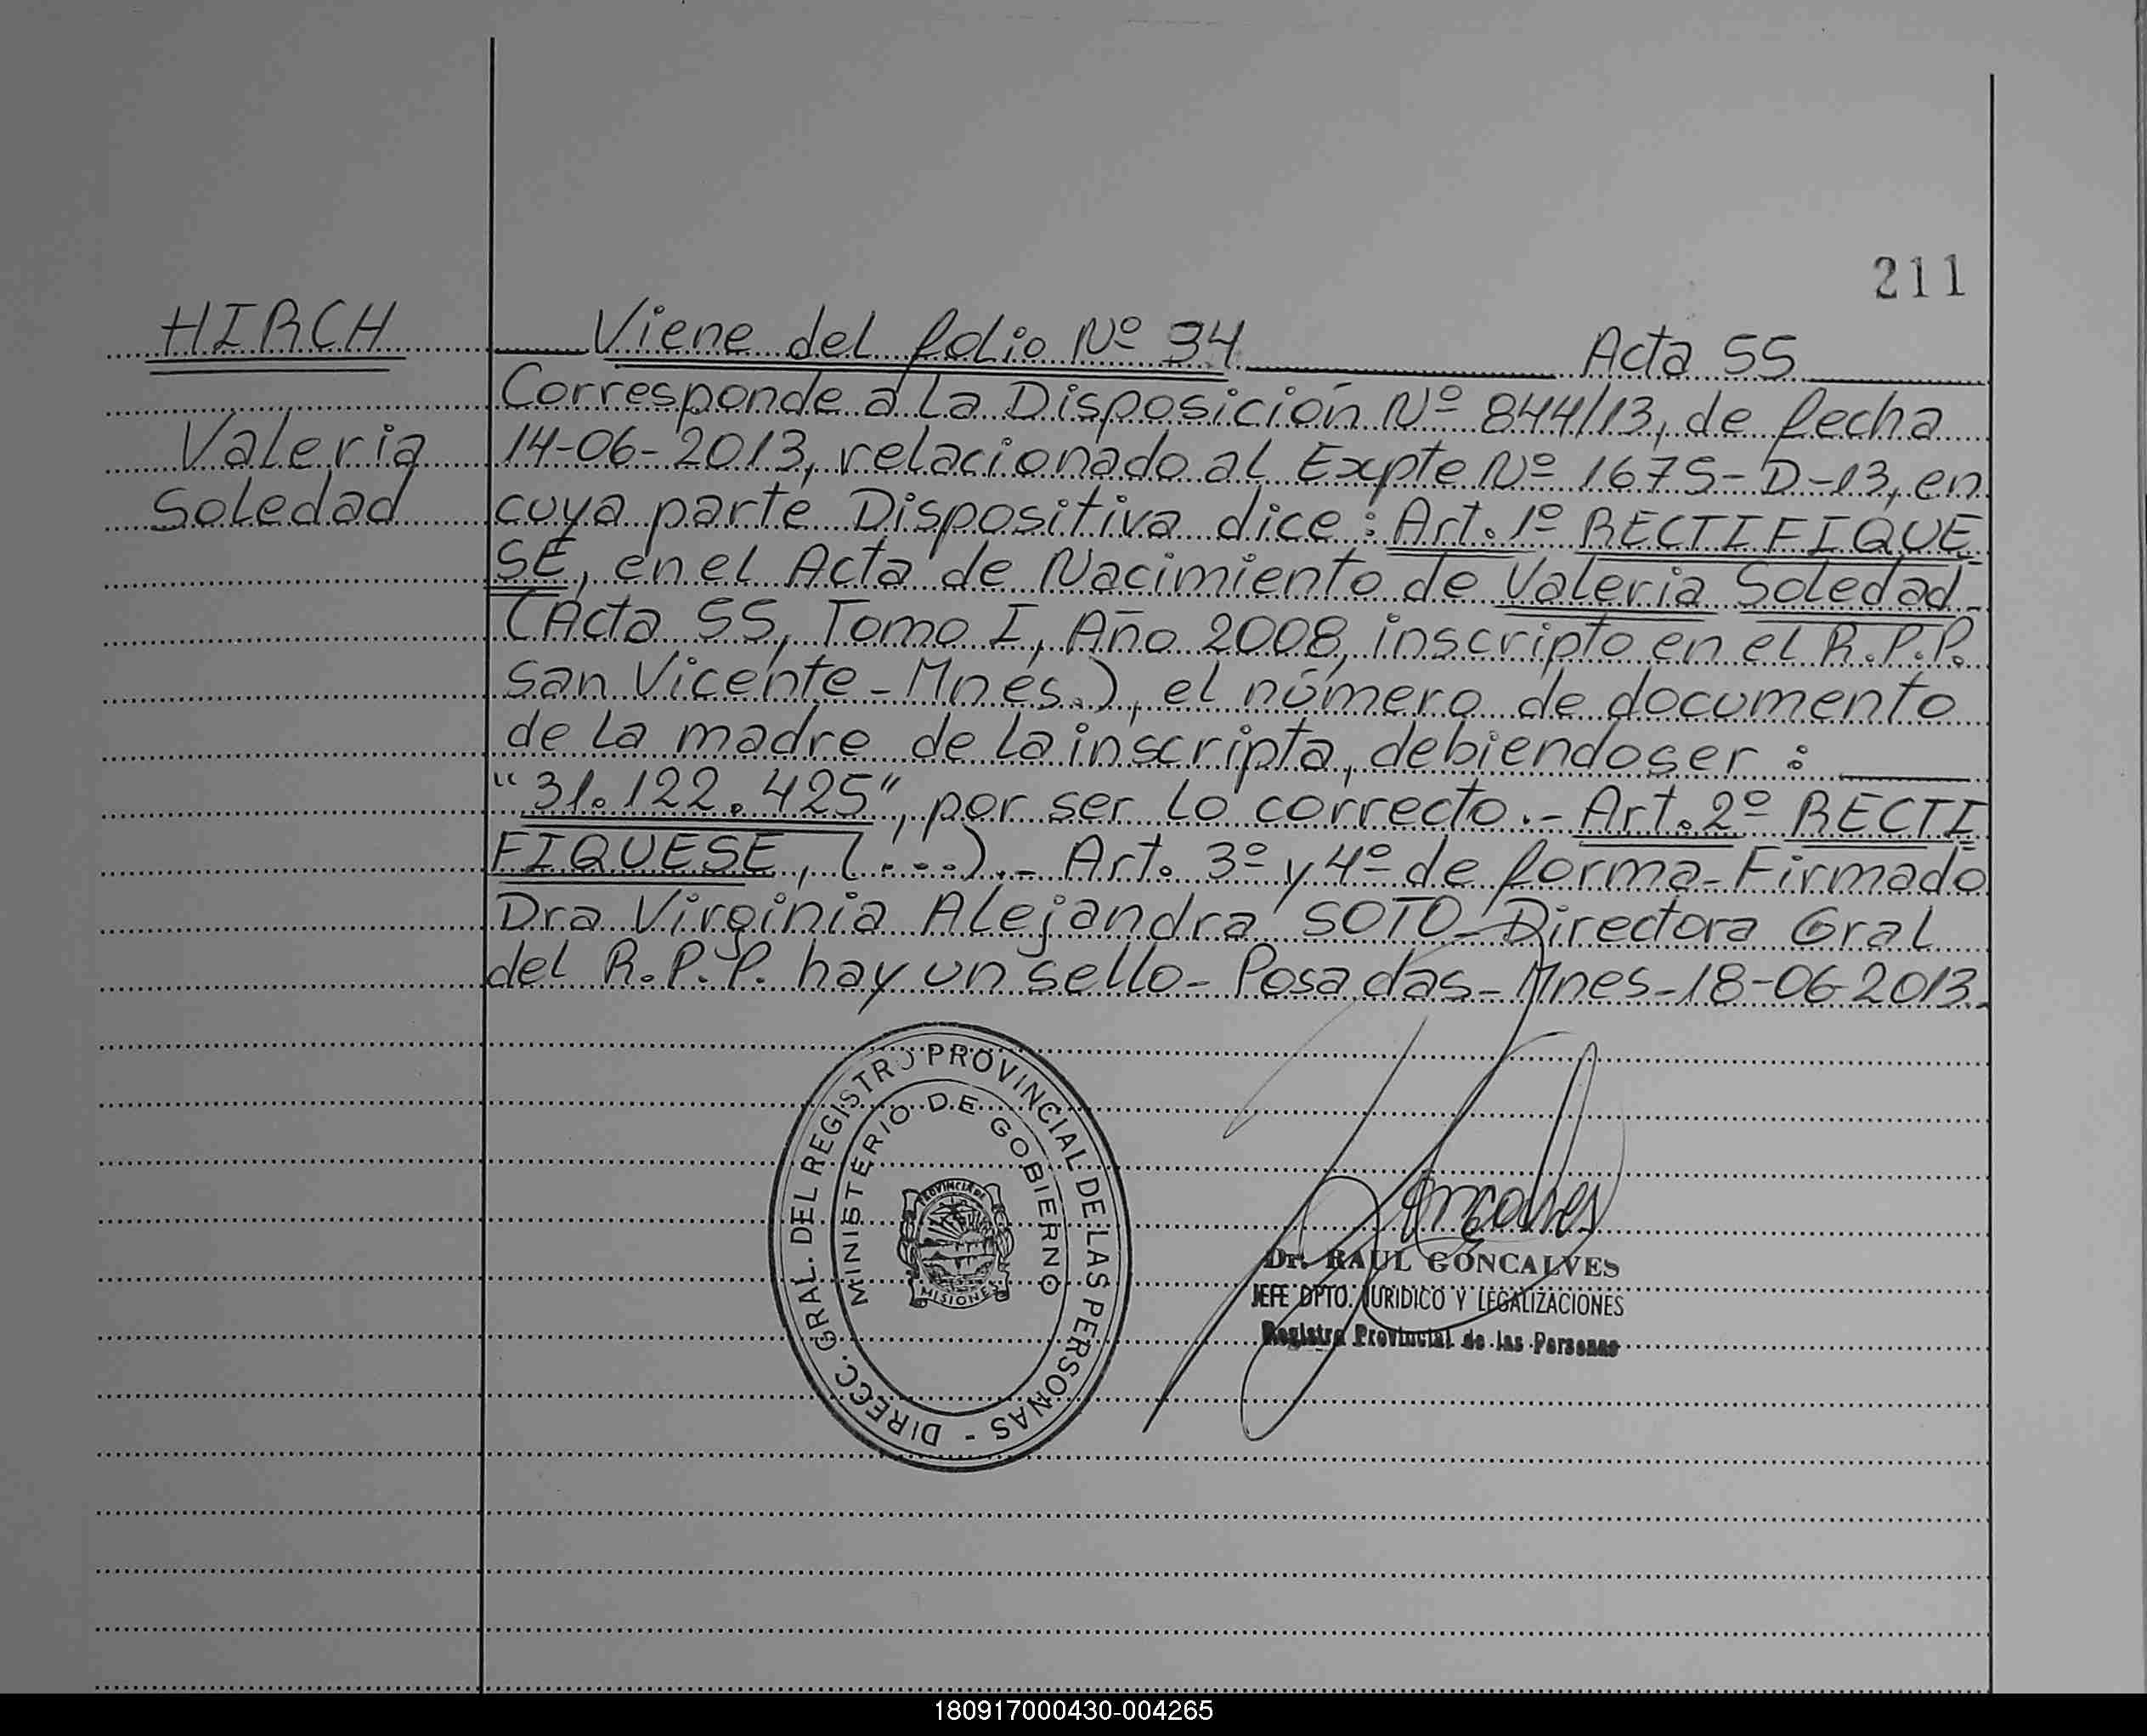 211
HIRCH
Viene del folio Nº 34 Acta 55
Corresponde a la Disposición Nº 844/13, de fecha
Valeria
14-06-2013, relacionado al Expte Nº 1675-D-13, en
Soledad
cuya parte Dispositiva dice: Art. 1º RECTIFIQUE
SE, en el Acta de Nacimiento de Valeria Soledad-
(Acta 55, Tomo I, Año 2008, inscripto en el R.P.P.
San Vicente-Mnes.), el número de documento
de la madre de la inscripta, debiendo ser:
"31.122.425", por ser lo correcto.- Art. 2º RECTI
FIQUESE, (....).- Art. 3º y 4º de forma-Firmado
Dra Virginia Alejandra SOTO-Directora Gral
del R.P.P. hay un sello- Posadas-Mnes-18-06-2013.
DIRECC. GRAL. DEL REGISTRO PROVINCIAL DE LAS PERSONAS -
MINISTERIO DE GOBIERNO
PROVINCIA DE
MISIONES
Goncalves
Dr. RAUL GONCALVES
JEFE DPTO. JURIDICO Y LEGALIZACIONES
Registro Provincial de las Personas
180917000430-004265